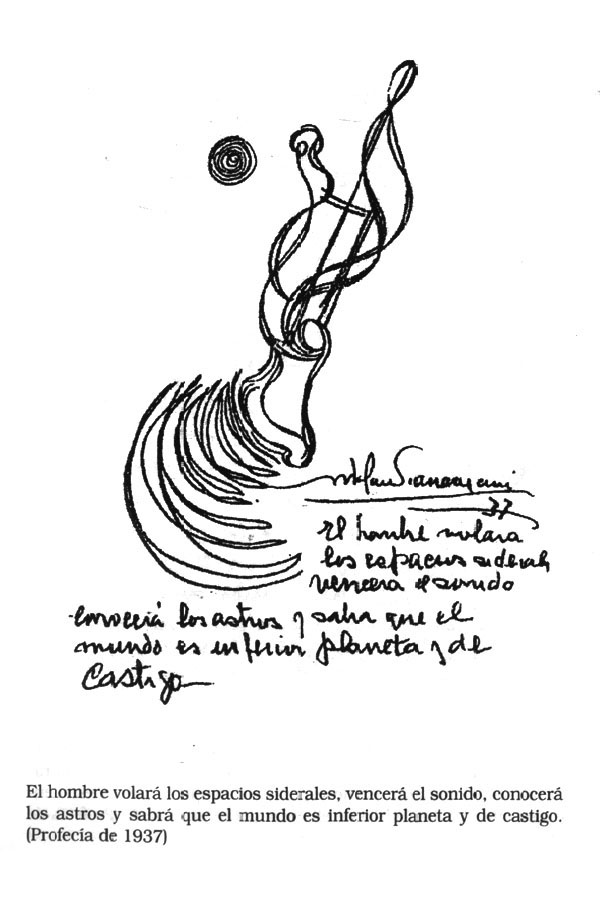 37
El hombre volara
los espacios siderales
vencera el sonido
conocerá los astros y sabra que el
mundo es inferior planeta y de
Castigo
El hombre volará los espacios siderales, vencerá el sonido, conocerá
los astros y sabrá que el mundo es inferior planeta y de castigo.
(Profecía de 1937)